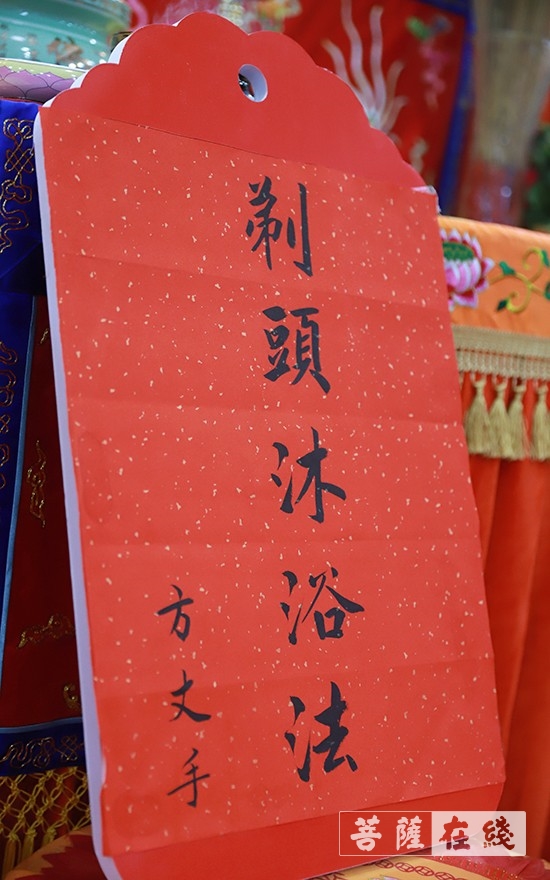 剃頭沐浴法
方丈手
菩薩在綫